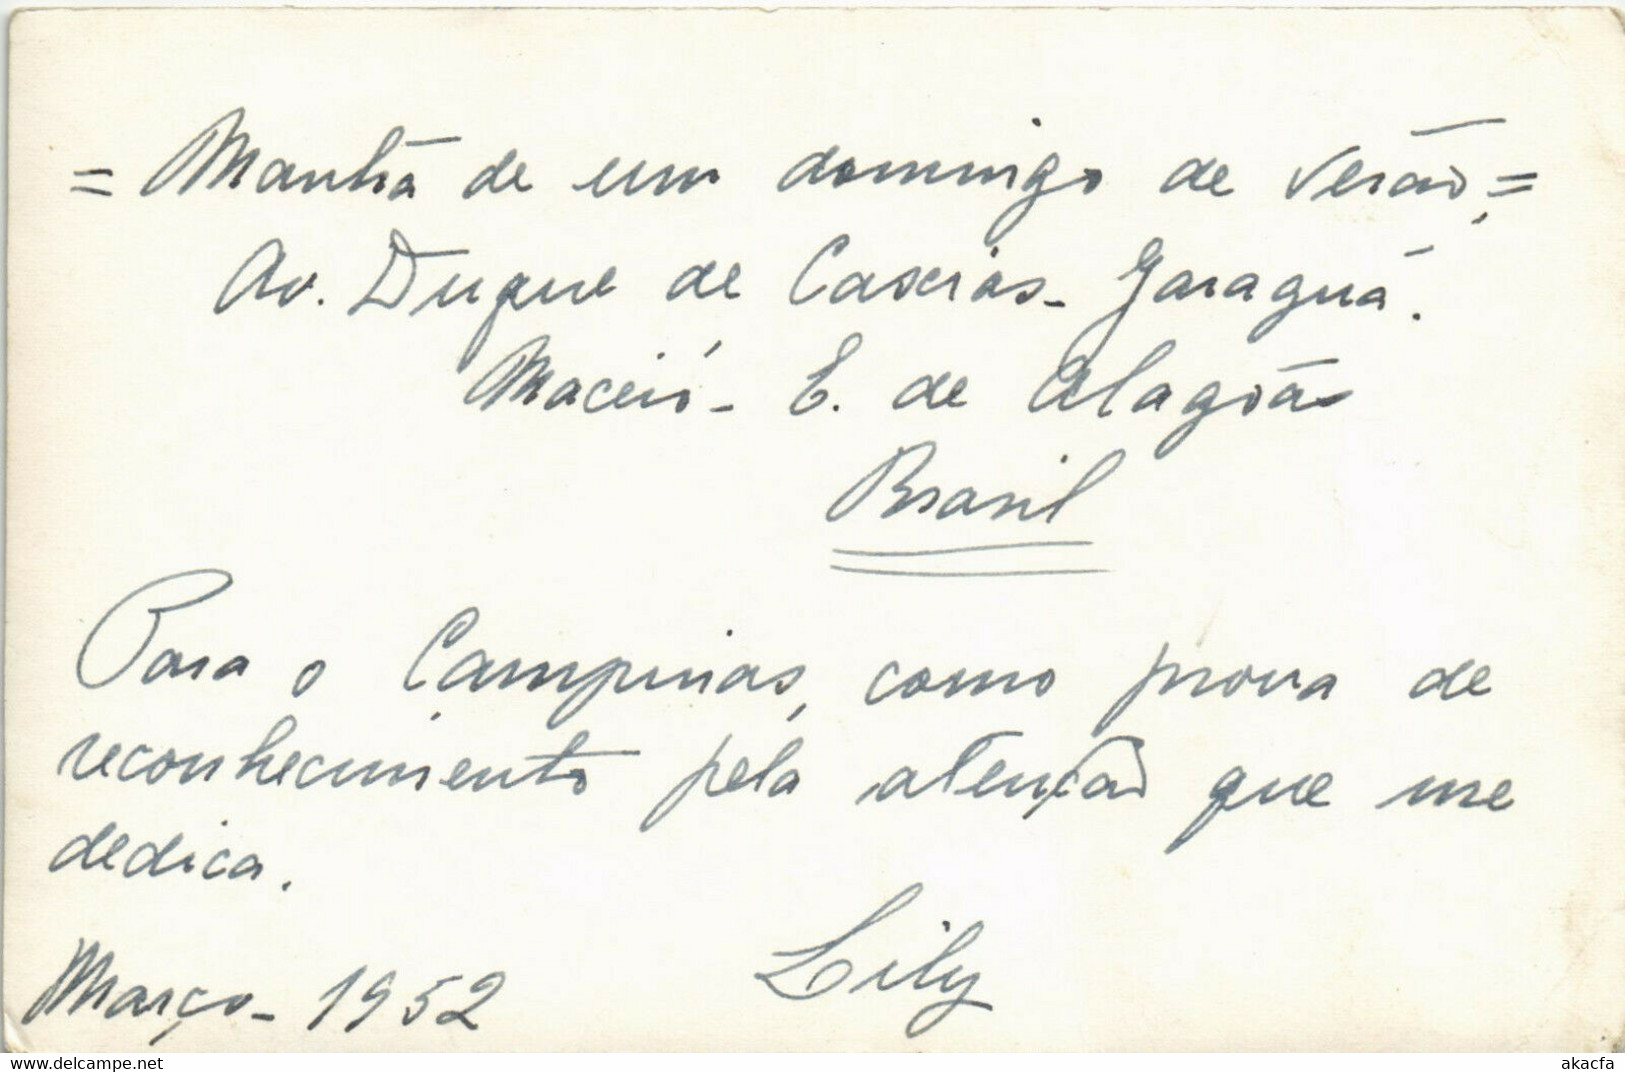 = Manhã de um domingo de Verão, =
Av. Duque de Caxias - Jaraguá.
Maceió - E. de Alagoas
Brasil
Para o Campinas, como prova de
reconhecimento pela atenção que me
dedica.
Lily
Março - 1952
akacfa